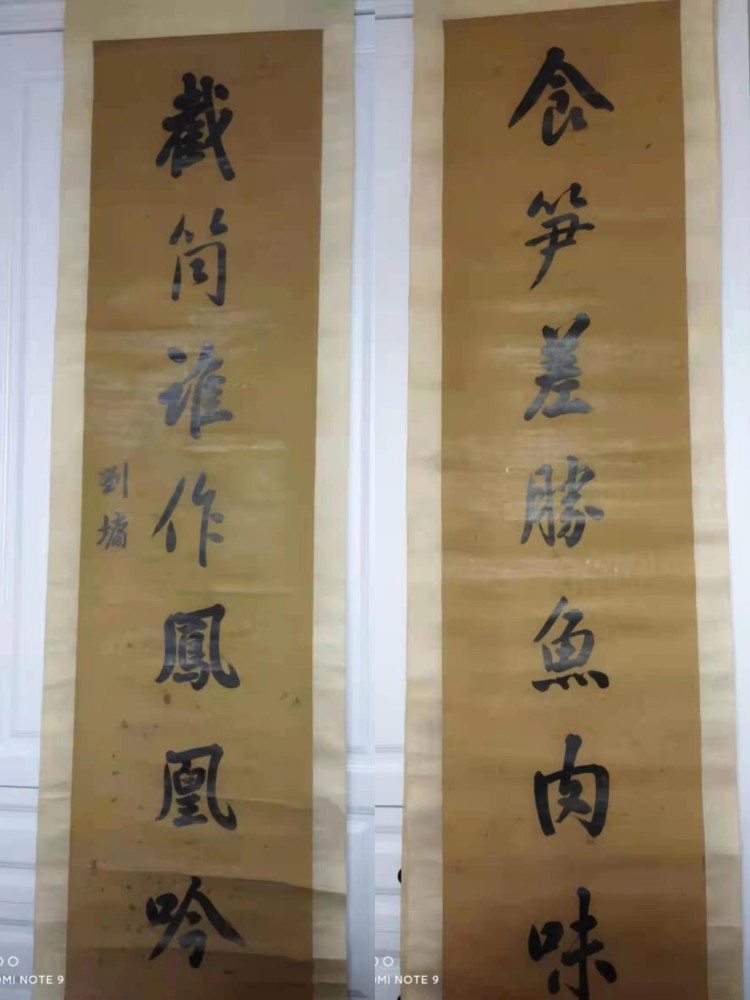 食笋差勝魚肉味
截筒誰作鳳凰吟
劉墉
OMI NOTE 9
OMI NOTE 9